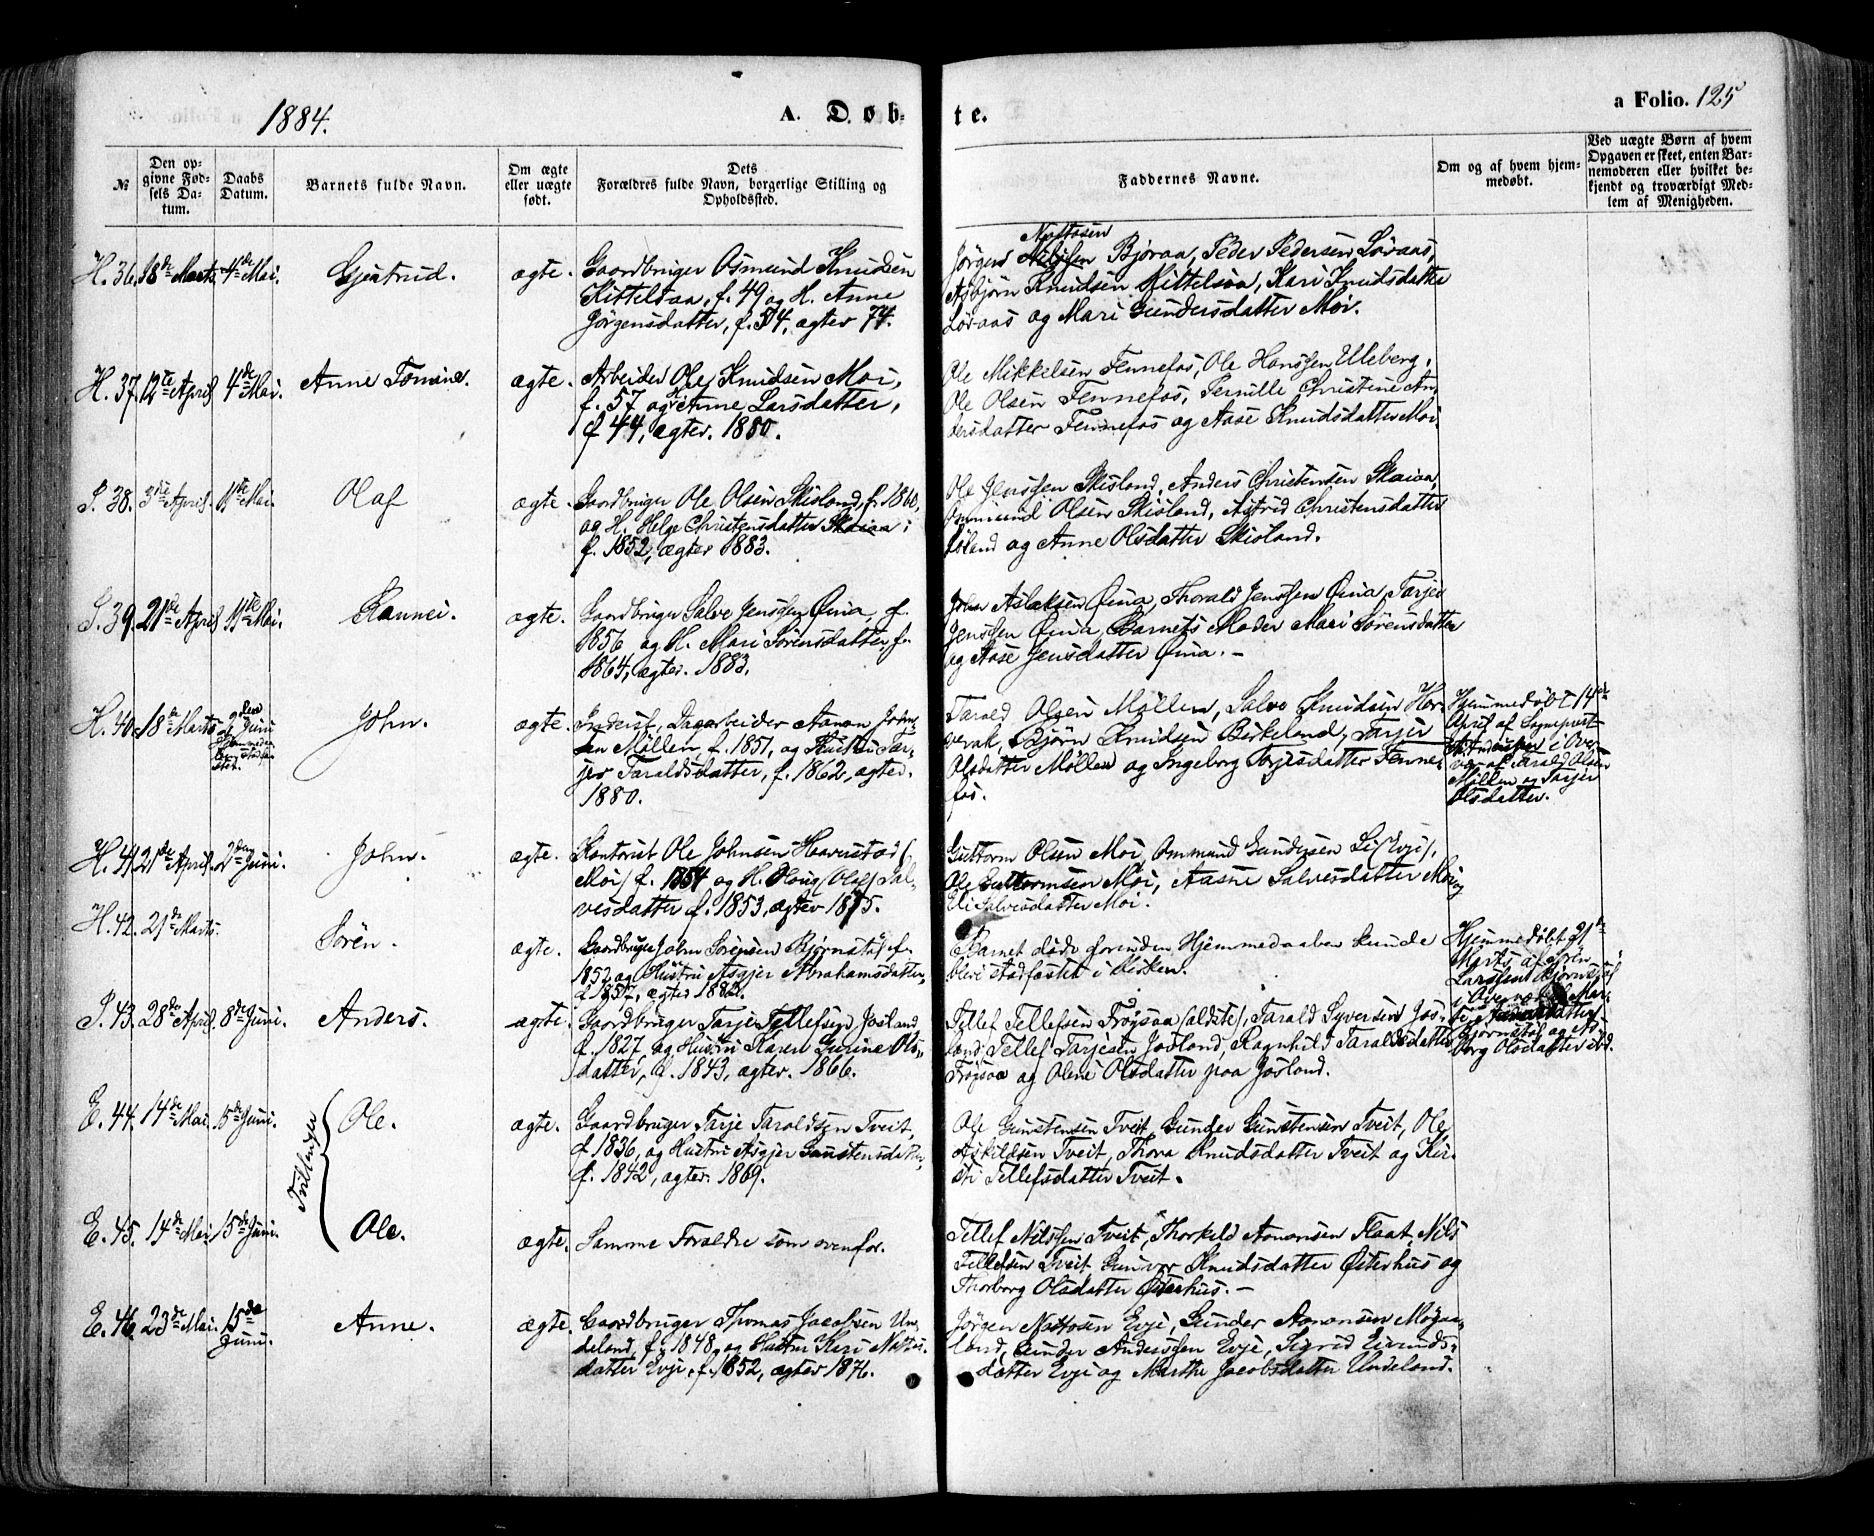 1884.
A. Døb-
te.
a Folio. 125
№
Den op-
givne Fød-
sels Da-
tum.
Daabs
Datum.
Barnets fulde Navn.
Om ægte
eller uægte
født.
Dets
Forældres fulde Navn, borgerlige Stilling og
Opholdssted.
Faddernes Navne.
Om og af hvem hjem-
medøbt.
Ved uægte Børn af hvem
Opgaven er skeet, enten Bar-
nemoderen eller hvilket be-
kjendt og troværdigt Med-
lem af Menigheden.
H. 36. 18de Marts. 4de Mai. Gjertrud. ægte.
Gaardbruger Osmund Knudsen
Kittelsaa, f. 49 og H. Anne
Jörgensdatter, f. 54, ægter 74.
Nottosen
Jörgen Bjoraa, Peder Pedersen Löraas,
Asbjörn Knudsen Kittelsaa, Kari Knudsdatter
Löraas og Mari Gundersdatter Moi.
H. 37. 12te April 4de Mai. Anne Tomine. ægte.
Arbeider Ole Knudsen Moi,
f. 57 og Anne Larsdatter,
f 44, ægter. 1880.
Ole Mikkelsen Fennefos, Ole Hanssen Uleberg,
Ole Olsen Fennefos, Pernille Christine An-
dersdatter Fennefos og Aase Knudsdatter Moi
I. 38. 3die April. 11te Mai. Olaf ægte.
Gaardbruger Ole Olsen Skisland, f. 1860,
og H. Helge Christensdatter Skaiaa,
f. 1852, ægter 1883.
Ole Jenssen Skisland, Anders Christensen Skaiaa,
Ommund Olsen Skisland, Astrid Christensdatter
og Anne Olsdatter Skisland.
I. 39. 21de April 11te Mai. Rannei. ægte.
Gaardbruger Salve Jenssen Øina, f.
1856, og H. Mari Sörensdatter, f.
1864, ægter. 1883.
John Aslaksen Øina, Thorald Jenssen Øina, Tarjei
Jenssen Øina, Barnets Moder Mari Sörensdatter
og Aase Jensdatter Øina. -
H. 40. 18de Marts 2den Juni John. ægte.
Inderst, Dagarbeider Aanon John-
sen Möllen, f. 1851, og Hustru Tar-
jer Taraldsdatter, f. 1862, ægter.
1880.
Tarald Olsen Möllen, Salve Knudsen Hor-
verak, Björn Knudsen Birkeland, Tarjer
Olsdatter Möllen og Ingeborg Terjesdatter Fenne-
fos.
Hjemmedöbt 14de
April af Sognepræst
i Over-
vær af Tarald Olsen
Möllen og Tarjer
Olsdatter.
H. 41. 21de April. 2den Juni. John. ægte.
Kontorist Ole Johnsen Haavestad (
Moi) f. 1854 og H. Haug (Olsd) Sal-
vesdatter f. 1853, ægter 1875.
Guttorm Olsen Moi, Ommund Gundersen Li (Evje),
Ole Guttormsen Moi, Aasne Salvesdatter Moi og
Eli Salvesdatter Moi.
H. 42. 21de Marts. Sören. ægte.
Gaardbruger John Sörensen Björnstöl f.
1852 og Hustru Asgjer Abrahamsdatter,
f 1857, ægter 1882.
Barnet döde forinden Hjemmedaaben kunde
blive stadfæstet i Kirken.
Hjemmedöbt 21de
Marts af Sören
Larssen Björnstöl
i Overvær af Mari
Björnstöl og As-
borg Olsdatter ibd.
I. 43. 28de April 8de Juni. Anders. ægte.
Gaardbruger Tarje Tellefsen Josland
f. 1827, og Hustru Karen Gurine Ols-
datter, f. 1843, ægter. 1866.
Tellef Tellefsen Frögsaa (ældste), Tarald Syversen Jos-
land, Tellef Tarjesen Josland, Ragnhild Taraldsdatter
Frögsaa og Olene Olsdatter paa Josland.
Tvillinger
E. 44. 14de Mai. 15de Juni. Ole. ægte.
Gaardbruger Tarje Taraldsen Tveit,
f 1836, og Hustru Asgjer Gunstensdatter,
f. 1842, ægter. 1869.
Ole Gunstensen Tveit, Gunder Gunstensen Tveit, Ole
Askildsen Tveit, Thora Knudsdatter Tveit og Kir-
sti Tellefsdatter Tveit.
E. 45. 14de Mai 15de Juni. Ole. ægte.
Samme Forældre som ovenfor.
Tellef Nilssen Tveit, Thorkild Aanonsen Flaat, Nils
Tellefsen Tveit Gunvor Knudsdatter Østerhus og
Thorborg Olsdatter Østerhus. -
E. 46. 23de Mai. 15de Juni. Anne. ægte.
Gaardbruger Thomas Jacobsen Un-
deland, f. 1848, og Hustru Kari Nottos-
datter Evje, f. 1852, ægter 1876.
Jörgen Nottosen Evje, Gunder Aanonsen
land, Gunder Anderssen Evje, Sigrid Eivinds-
datter Evje og Marthe Jacobsdatter Undeland.